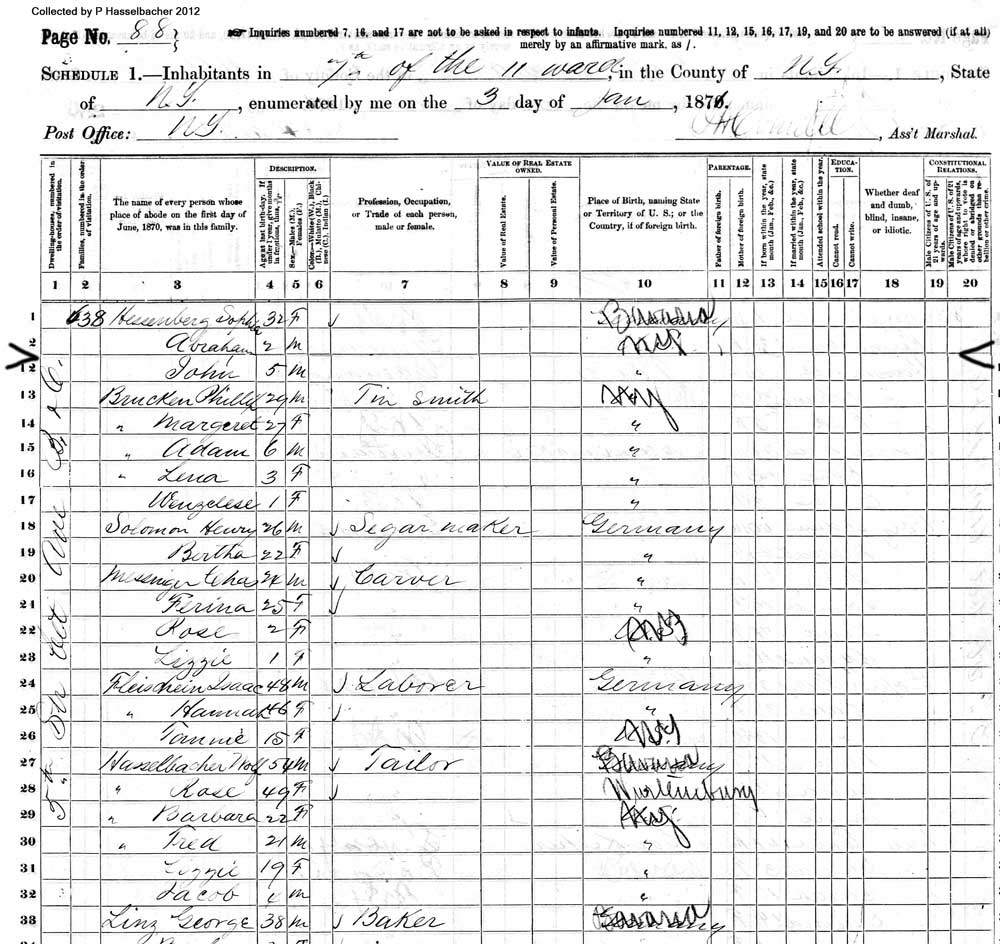 Collected by P Hasselbacher 2012
Page No. 88
☞ Inquiries numbered 7, 16, and 17 are not to be asked in respect to infants. Inquiries numbered 11, 12, 15, 16, 17, 19, and 20 are to be answered (if at all)
merely by an affirmative mark, as /.
SCHEDULE 1.—Inhabitants in 7th of the 11 ward, in the County of N.Y., State
of N.Y., enumerated by me on the 3 day of Jan, 1871.
Post Office: N.Y. , Ass't Marshal.
Dwelling-houses, numbered in the order of visitation.
Families, numbered in the order of visitation.
The name of every person whose place of abode on the first day of June, 1870, was in this family.
DESCRIPTION.
Age at last birth-day. If under 1 year, give months in fractions, thus,
Sex.—Males (M.), Females (F.)
Color.—White (W.), Black (B.), Mulatto (M.), Chinese (C.), Indian (I.)
Profession, Occupation, or Trade of each person, male or female.
VALUE OF REAL ESTATE OWNED.
Value of Real Estate.
Value of Personal Estate.
Place of Birth, naming State or Territory of U. S.; or the Country, if of foreign birth.
PARENTAGE.
Father of foreign birth.
Mother of foreign birth.
If born within the year, state month (Jan., Feb., &c.)
If married within the year, state month (Jan., Feb., &c.)
Attended school within the year.
EDUCATION.
Cannot read.
Cannot write.
Whether deaf and dumb, blind, insane, or idiotic.
CONSTITUTIONAL RELATIONS.
Male Citizens of U. S. of 21 years of age and upwards.
Male Citizens of U. S. of 21 years of age and upwards, where right to vote is denied or abridged on other grounds than rebellion or other crime.
1 2 3 4 5 6 7 8 9 10 11 12 13 14 15 16 17 18 19 20
1 638 Sopha 32 F Bavaria
2 Abraham 2 M N.Y.
12 John 5 M "
13 Brucken Phillip 29 M Tin smith N.Y.
14 " Margeret 27 F "
15 " Adam 6 M "
16 " Lena 3 F "
17 Wenzelese 1 F "
18 Solomon Henry 26 M Segar maker Germany
19 Bertha 22 F "
20 Messinger Chas 24 M Carver "
21 Ferina 25 F "
22 Rose 2 F N.Y.
23 Lizzie 1 F "
24 Fleischein Isaac 48 M Laborer Germany
25 " Hannah 46 F "
26 Tannie 15 F N.Y.
27 Hasselbacher Wolf 54 M Tailor Bavaria
28 " Rose 49 F Wurtemburg
29 " Barbara 22 F N.Y.
30 " Fred 21 M "
31 Lizzie 19 F "
32 Jacob M "
33 Linz George 38 M Baker Bavaria